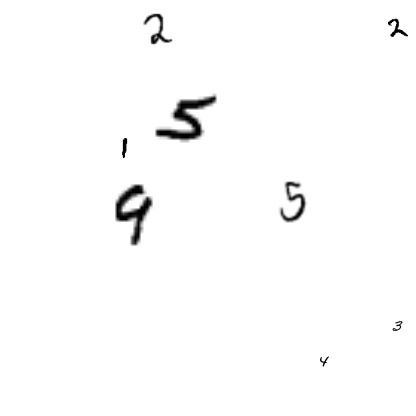 2 2
5
1
9 5
3
4